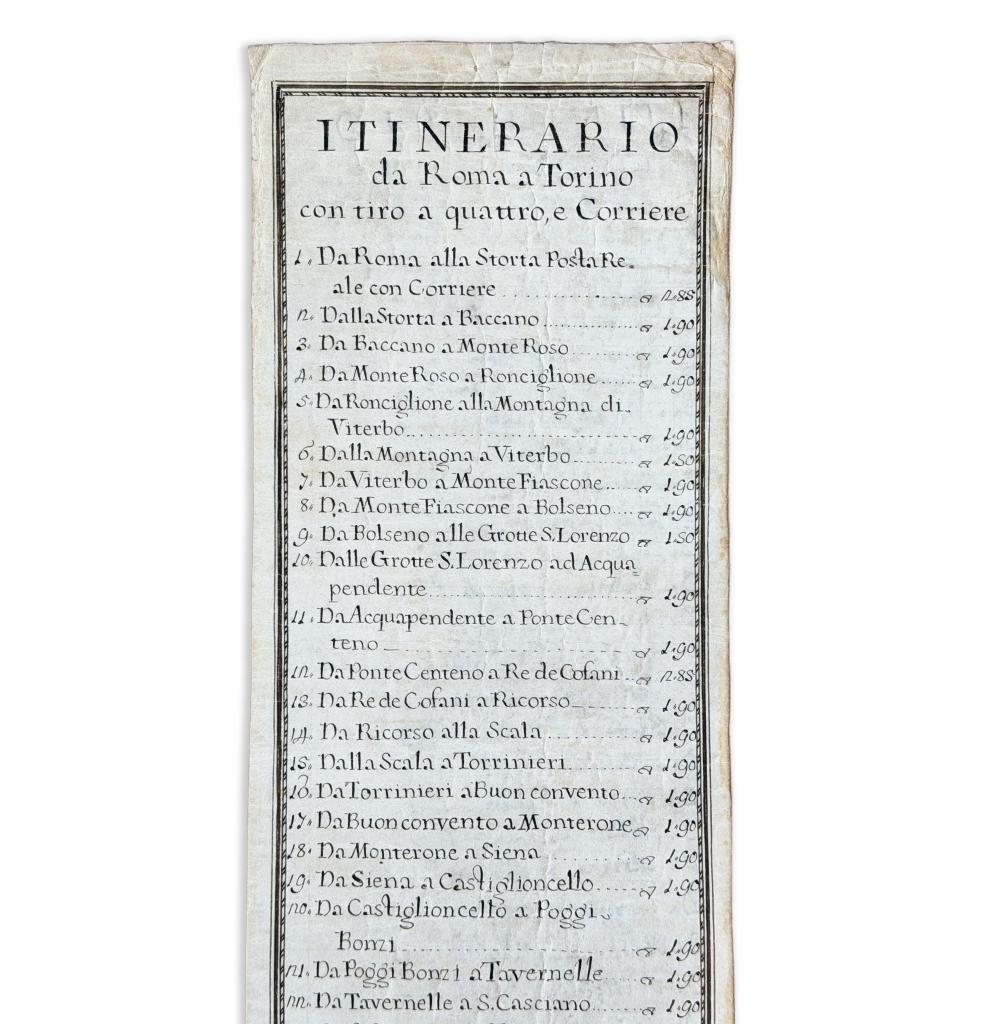 ITINERARIO
da Roma a Torino
con tiro a quattro, e Corriere
1. Da Roma alla Storta Posta Re-
ale con Corriere ........ 2.85
2. Dalla Storta a Baccano ........ 1.90
3. Da Baccano a Monte Roso ........ 1.90
4. Da Monte Roso a Ronciglione ...... 1.90
5. Da Ronciglione alla Montagna di
Viterbo ........ 1.90
6. Dalla Montagna a Viterbo ........ 1.50
7. Da Viterbo a Monte Fiascone ..... 1.90
8. Da Monte Fiascone a Bolseno .... 1.90
9. Da Bolseno alle Grotte S. Lorenzo 1.50
10. Dalle Grotte S. Lorenzo ad Acqua=
pendente ........ 1.90
11. Da Acquapendente a Ponte Cen-
teno ........ 1.90
12. Da Ponte Centeno a Re de Cofani .. 2.85
13. Da Re de Cofani a Ricorso ........ 1.90
14. Da Ricorso alla Scala ........ 1.90
15. Dalla Scala a Torrinieri ........ 1.90
16. Da Torrinieri a Buon convento ... 1.90
17. Da Buon convento a Monterone 1.90
18. Da Monterone a Siena ........ 1.90
19. Da Siena a Castiglioncello ...... 1.90
20. Da Castiglioncello a Poggi-
Bonzi ........ 1.90
21. Da Poggi Bonzi a Tavernelle ..... 1.90
22. Da Tavernelle a S. Casciano ...... 1.90